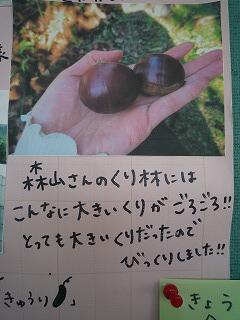 森山さんのくり林には
こんなに大きいくりがごろごろ!!
とっても大きいくりだったので
びっくりしました!!
きゅうり」
きょう